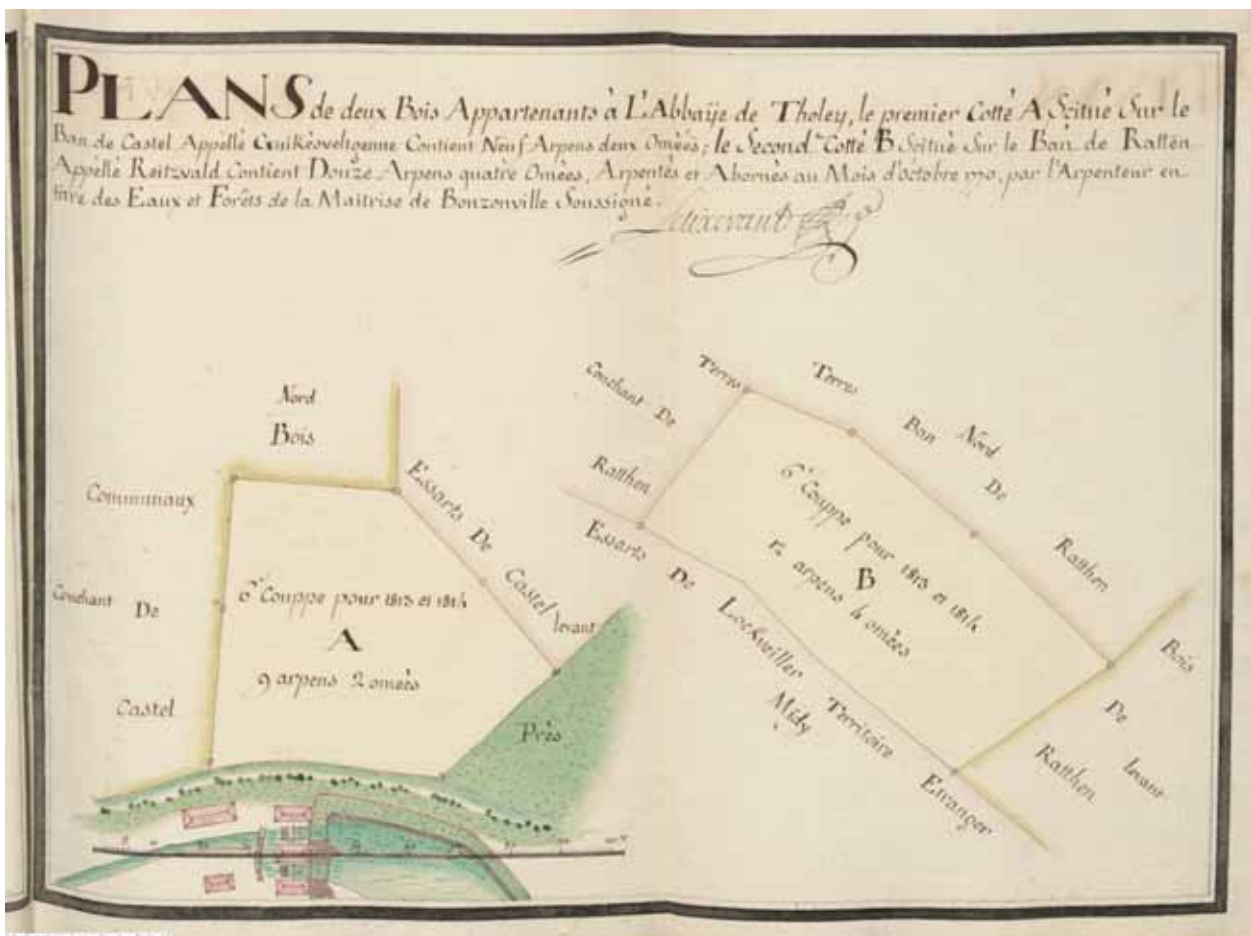 PLANS de deux Bois Appartenants à L'Abbaÿe de Tholey, le premier Cotté A Scitué Sur le
Ban de Castel Appellé Contient Neuf Arpens deux Omèes; le Second Cotté B Scitué Sur le Ban de Ratten
Appellé Reitzvald Contient Douze Arpens quatre Omèes, Arpentés et Abornés au Mois d'octobre par l'Arpenteur en
titre des Eaux et Forêts de la Maitrise de Bouzonville Soussigné.
Nord
Bois
Communaux
Couchant De
Castel
Essarts De Castel
levant
6e Couppe pour 1813 et 1814
A
9 arpens 2 omèes
Près
Couchant De
Ratthen
Terres
Terres
Ban De Ratthen
Nord
6e Couppe pour 1813 et 1814
B
12 arpens 4 omèes
Essarts De Lockveiller Territoire Etranger
Midy
Bois
De
Ratthen
levant